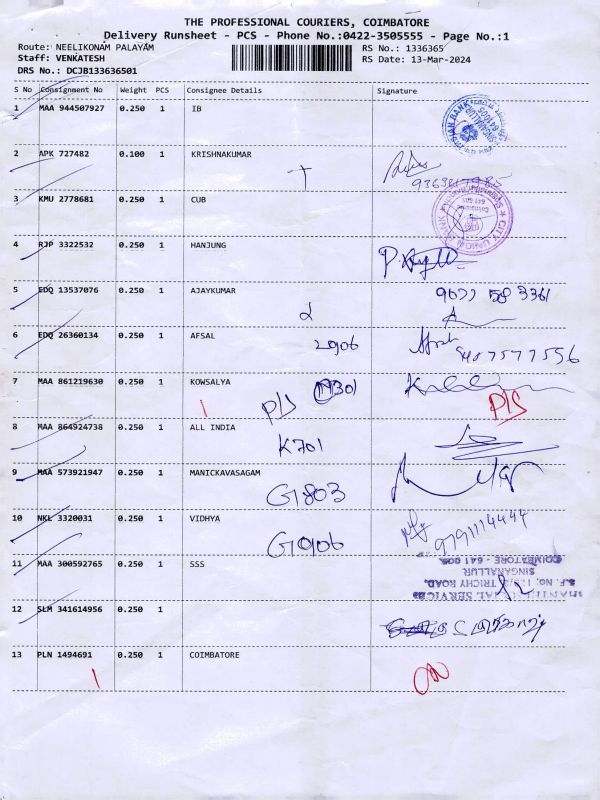 THE PROFESSIONAL COURIERS, COIMBATORE
Delivery Runsheet - PCS - Phone No.:0422-3505555 - Page No.:1
Route: NEELIKONAM PALAYAM RS No.: 1336365
Staff: VENKATESH RS Date: 13-Mar-2024
DRS No.: DCJB133636501
S No Consignment No Weight PCS Consignee Details Signature
1 MAA 944507927 0.250 1 IB
2 APK 727482 0.100 1 KRISHNAKUMAR
3 KMU 2778681 0.250 1 CUB
CITY UNION BANK
4 RJP 3322532 0.250 1 HANJUNG
5 EDQ 13537076 0.250 1 AJAYKUMAR
9677 58 3361
6 EDQ 26360134 0.250 1 AFSAL
2906
7 MAA 861219630 0.250 1 KOWSALYA
P/S
8 MAA 864924738 0.250 1 ALL INDIA
K701
9 MAA 573921947 0.250 1 MANICKAVASAGAM
G1803
10 NKL 3320031 0.250 1 VIDHYA
G1906 9791114444
11 MAA 300592765 0.250 1 SSS
COIMBATORE - 641 005.
SINGANALLUR
TRICHY ROAD,
12 SLM 341614956 0.250 1
13 PLN 1494691 0.250 1 COIMBATORE